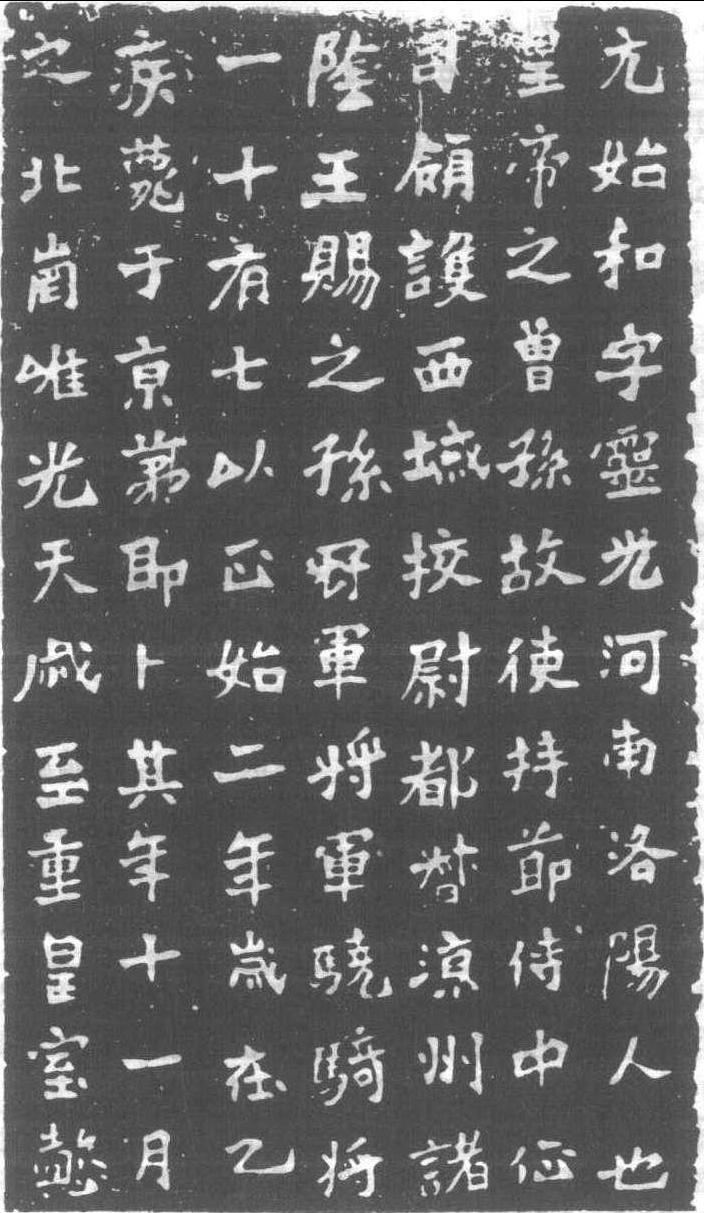 元始和字靈光河南洛陽人也
皇帝之曾孫故使持節侍中征
司領護西域校尉都督涼州諸
陰王賜之孫冠軍將軍驍騎將
一十有七以正始二年歲在乙
疾薨于京第即卜其年十一月
之北崗唯光天戚至重皇室懿